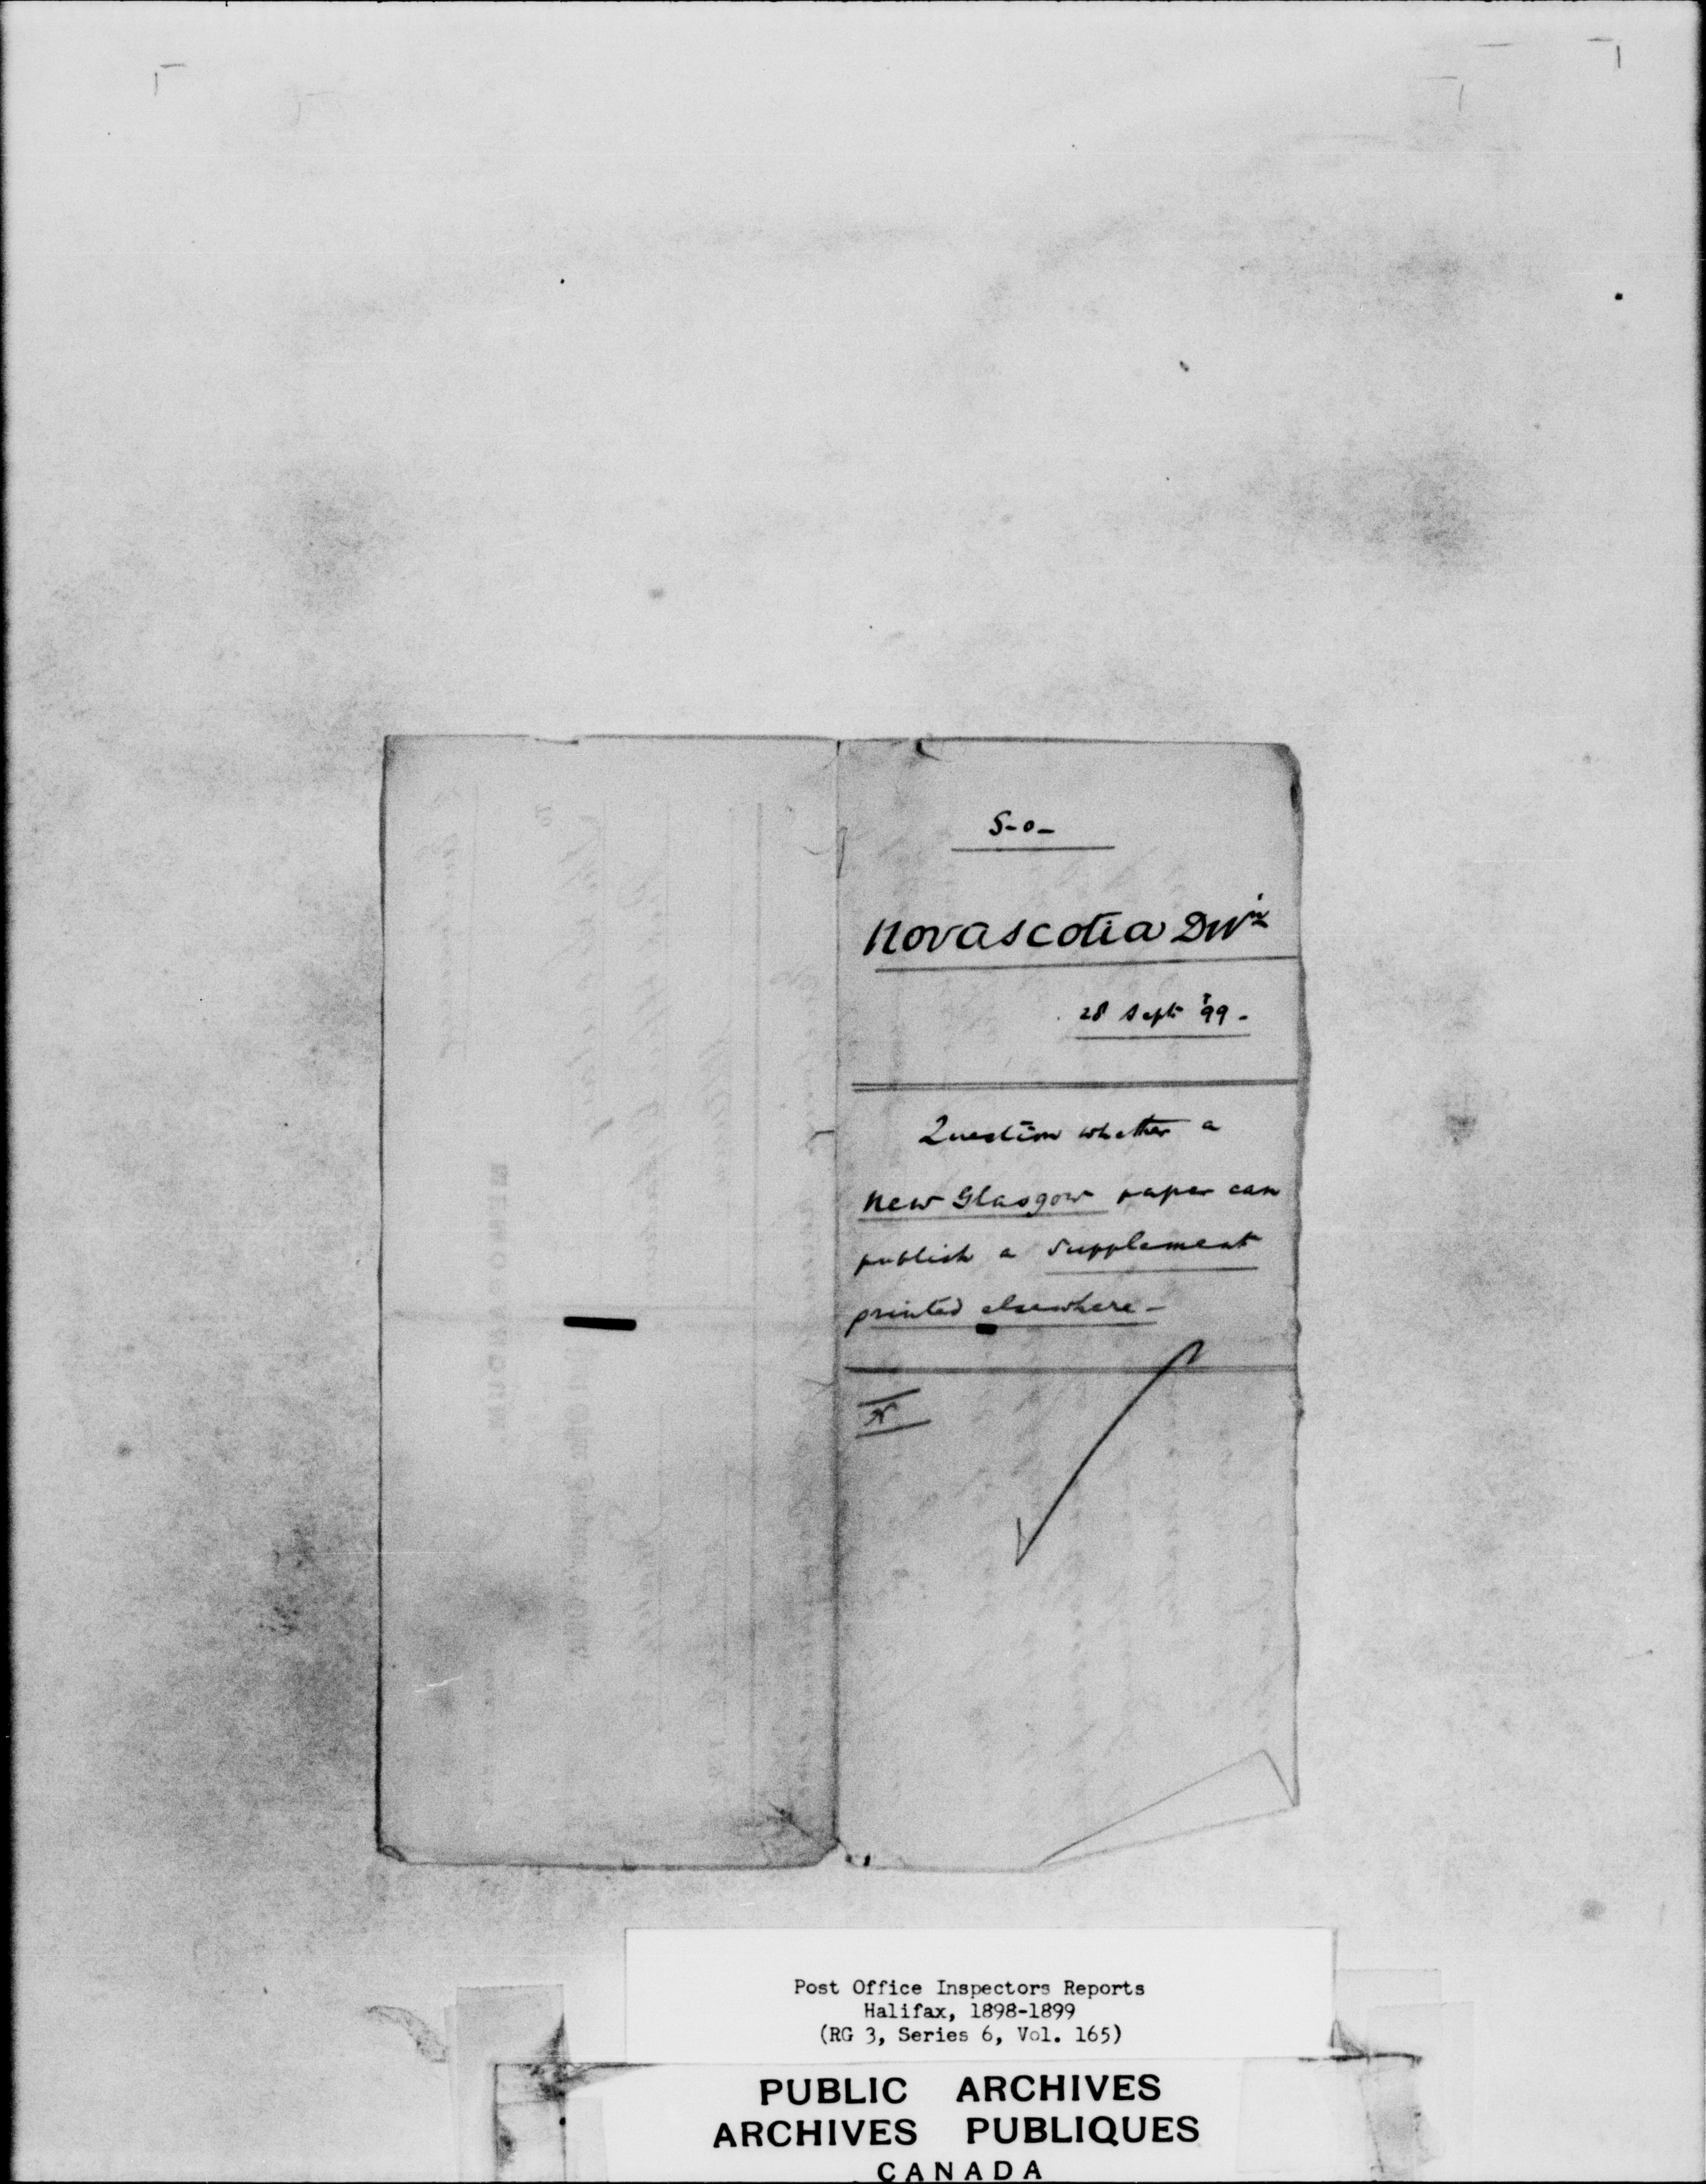 S-o-
Nova Scotia Divn
28 Sept '99-
Question whether a
New Glasgow paper can
publish a Supplement
printed elsewhere-
Post Office Inspectors Reports
Halifax, 1898-1899
(RG 3, Series 6, Vol. 165)
PUBLIC ARCHIVES
ARCHIVES PUBLIQUES
CANADA